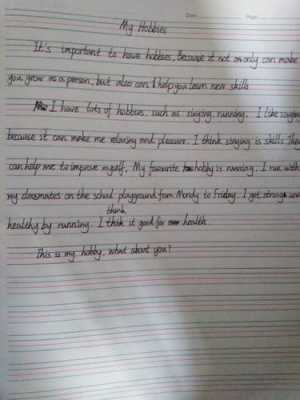 Date Page
My Hobbies
It's important to have hobbies, Because it not only can make
you grow as a person, but also can help you learn new skills
I have lots of hobbies. such as singing, running. I like singing
because it can make me relaxing and pleasure. I think singing is skills
can help me to improve myself. My favourite hobby is running. I run with
my classmates on the school playground from Monday to Friday. I get strong
healthy by running. I think it good for health
This is my hobby, what about you?